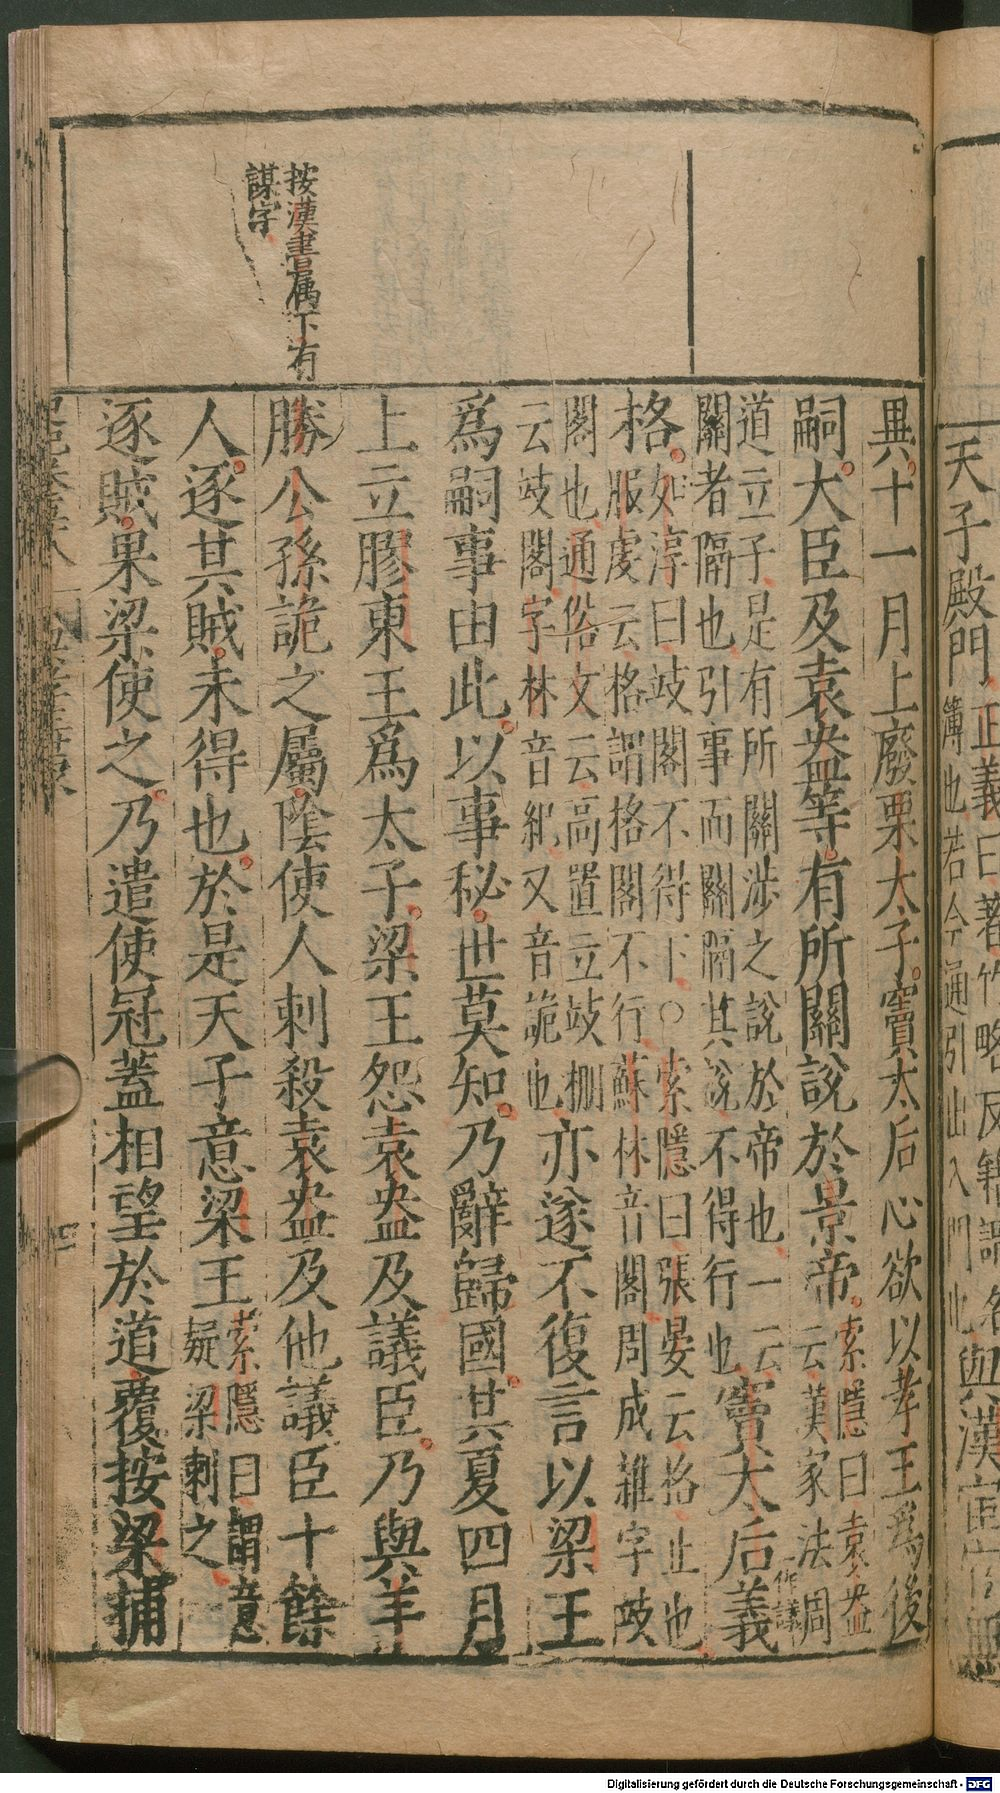 天子殿門
正義曰著竹略反籍謂名
簿也若今通引出入門也
與漢宦官無
按漢書屬下有
謀字
異十一月上廢栗太子竇太后心欲以孝王爲後
嗣大臣及袁盎等有所關說於景帝
索隱曰袁盎
云漢家法周
道立子是有所關涉之說於帝也一云
關者隔也引事而關隔其說不得行也
竇太后義
一作議
格
如淳曰歧閣不得下○索隱曰張晏云格止也
服虔云格謂格閣不行蘇林音閣周成雜字歧
閣也通俗文云高置立歧棚
云歧閣字林音紀又音詭也
亦遂不復言以梁王
爲嗣事由此以事秘世莫知乃辭歸國其夏四月
上立膠東王爲太子梁王怨袁盎及議臣乃與羊
勝公孫詭之屬陰使人刺殺袁盎及他議臣十餘
人逐其賊未得也於是天子意梁王
索隱曰謂意
疑梁刺之
逐賊果梁使之乃遣使冠蓋相望於道覆按梁捕
Digitalisierung gefördert durch die Deutsche Forschungsgemeinschaft - DFG